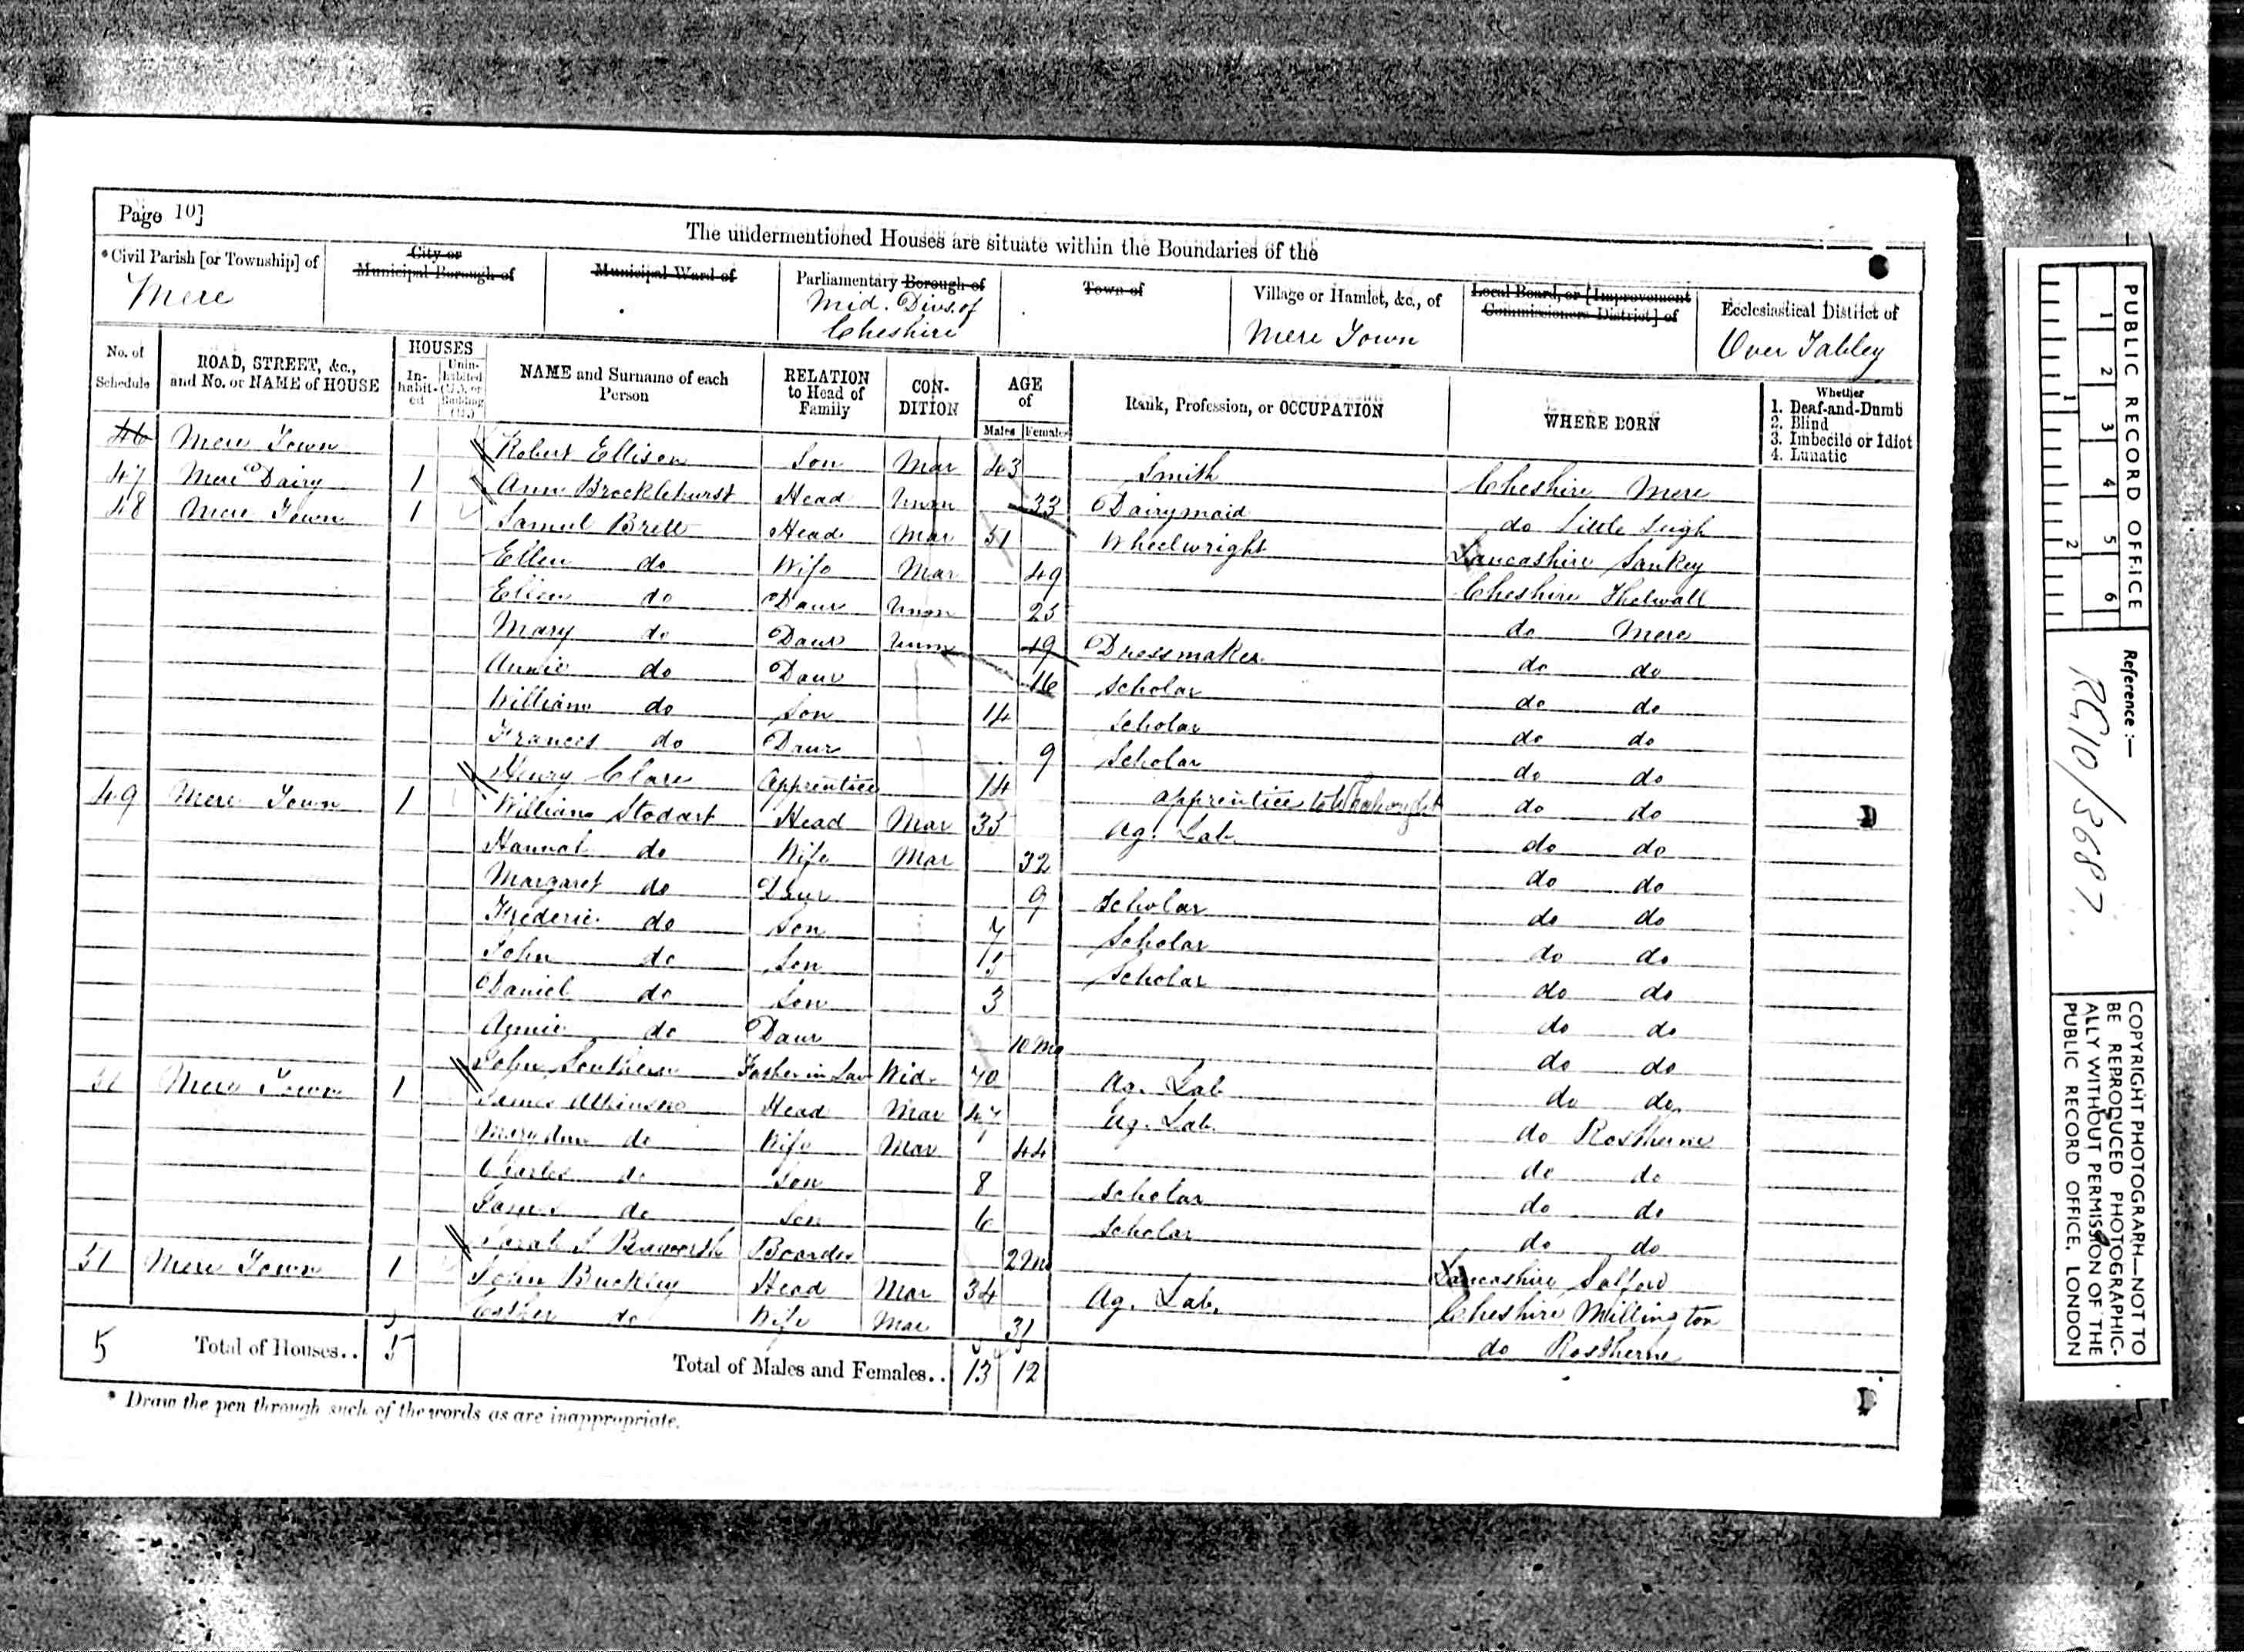 Page 10]
The undermentioned Houses are situate within the Boundaries of the
*Civil Parish [or Township] of
Mere
City or Municipal Borough of
Municipal Ward of
Parliamentary Borough of
Mid. Divs. of Cheshire
Town of
Village or Hamlet, &c., of
Mere Town
Local Board, or [Improvement Commissioners District] of
Ecclesiastical District of
Over Tabley
No. of Schedule
ROAD, STREET, &c., and No. or NAME of HOUSE
HOUSES
In-habit-ed
Unin-habited (U.), or Building (B.)
NAME and Surname of each Person
RELATION to Head of Family
CON-DITION
AGE of
Males Females
Rank, Profession, or OCCUPATION
WHERE BORN
Whether
1. Deaf-and-Dumb
2. Blind
3. Imbecile or Idiot
4. Lunatic
46 Mere Town Robert Ellison Son Mar 43 Smith Cheshire Mere
47 Mere Dairy 1 Ann Brocklehurst Head Unm 33 Dairymaid do Little Leigh
48 Mere Town 1 Samuel Brett Head Mar 51 Wheelwright Lancashire Sankey
Ellen do Wife Mar 49 Cheshire Thelwall
Ellen do Daur Unm 25 do Mere
Mary do Daur Unm 19 Dressmaker do do
Annie do Daur 16 Scholar do do
William do Son 14 Scholar do do
Frances do Daur 9 Scholar do do
Henry Clare Apprentice 14 apprentice to do do
49 Mere Town 1 William Stodart Head Mar 35 Ag. Lab. do do
Hannah do Wife Mar 32 do do
Margaret do Daur 9 Scholar do do
Frederic do Son 7 Scholar do do
John do Son 5 Scholar do do
Daniel do Son 3 do do
Annie do Daur 10 Mo do do
John Southern Father in Law Wid. 70 Ag. Lab do do
50 Mere Town 1 James Atkinson Head Mar 47 Ag. Lab. do Rostherne
Mary Ann do Wife Mar 44 do do
Charles do Son 8 Scholar do do
James do Son 6 Scholar do do
Sarah Boarder 2 Mo Lancashire Salford
51 Mere Town 1 John Buckley Head Mar 34 Ag. Lab. Cheshire Millington
Esther do Wife Mar 31 do Rostherne
5 Total of Houses.. 5 Total of Males and Females.. 13 12
* Draw the pen through such of the words as are inappropriate.
PUBLIC RECORD OFFICE
1 2 3 4 5 6
1 2
Reference :—
RG10/3687
COPYRIGHT PHOTOGRAPH—NOT TO
BE REPRODUCED PHOTOGRAPHIC-
ALLY WITHOUT PERMISSION OF THE
PUBLIC RECORD OFFICE, LONDON